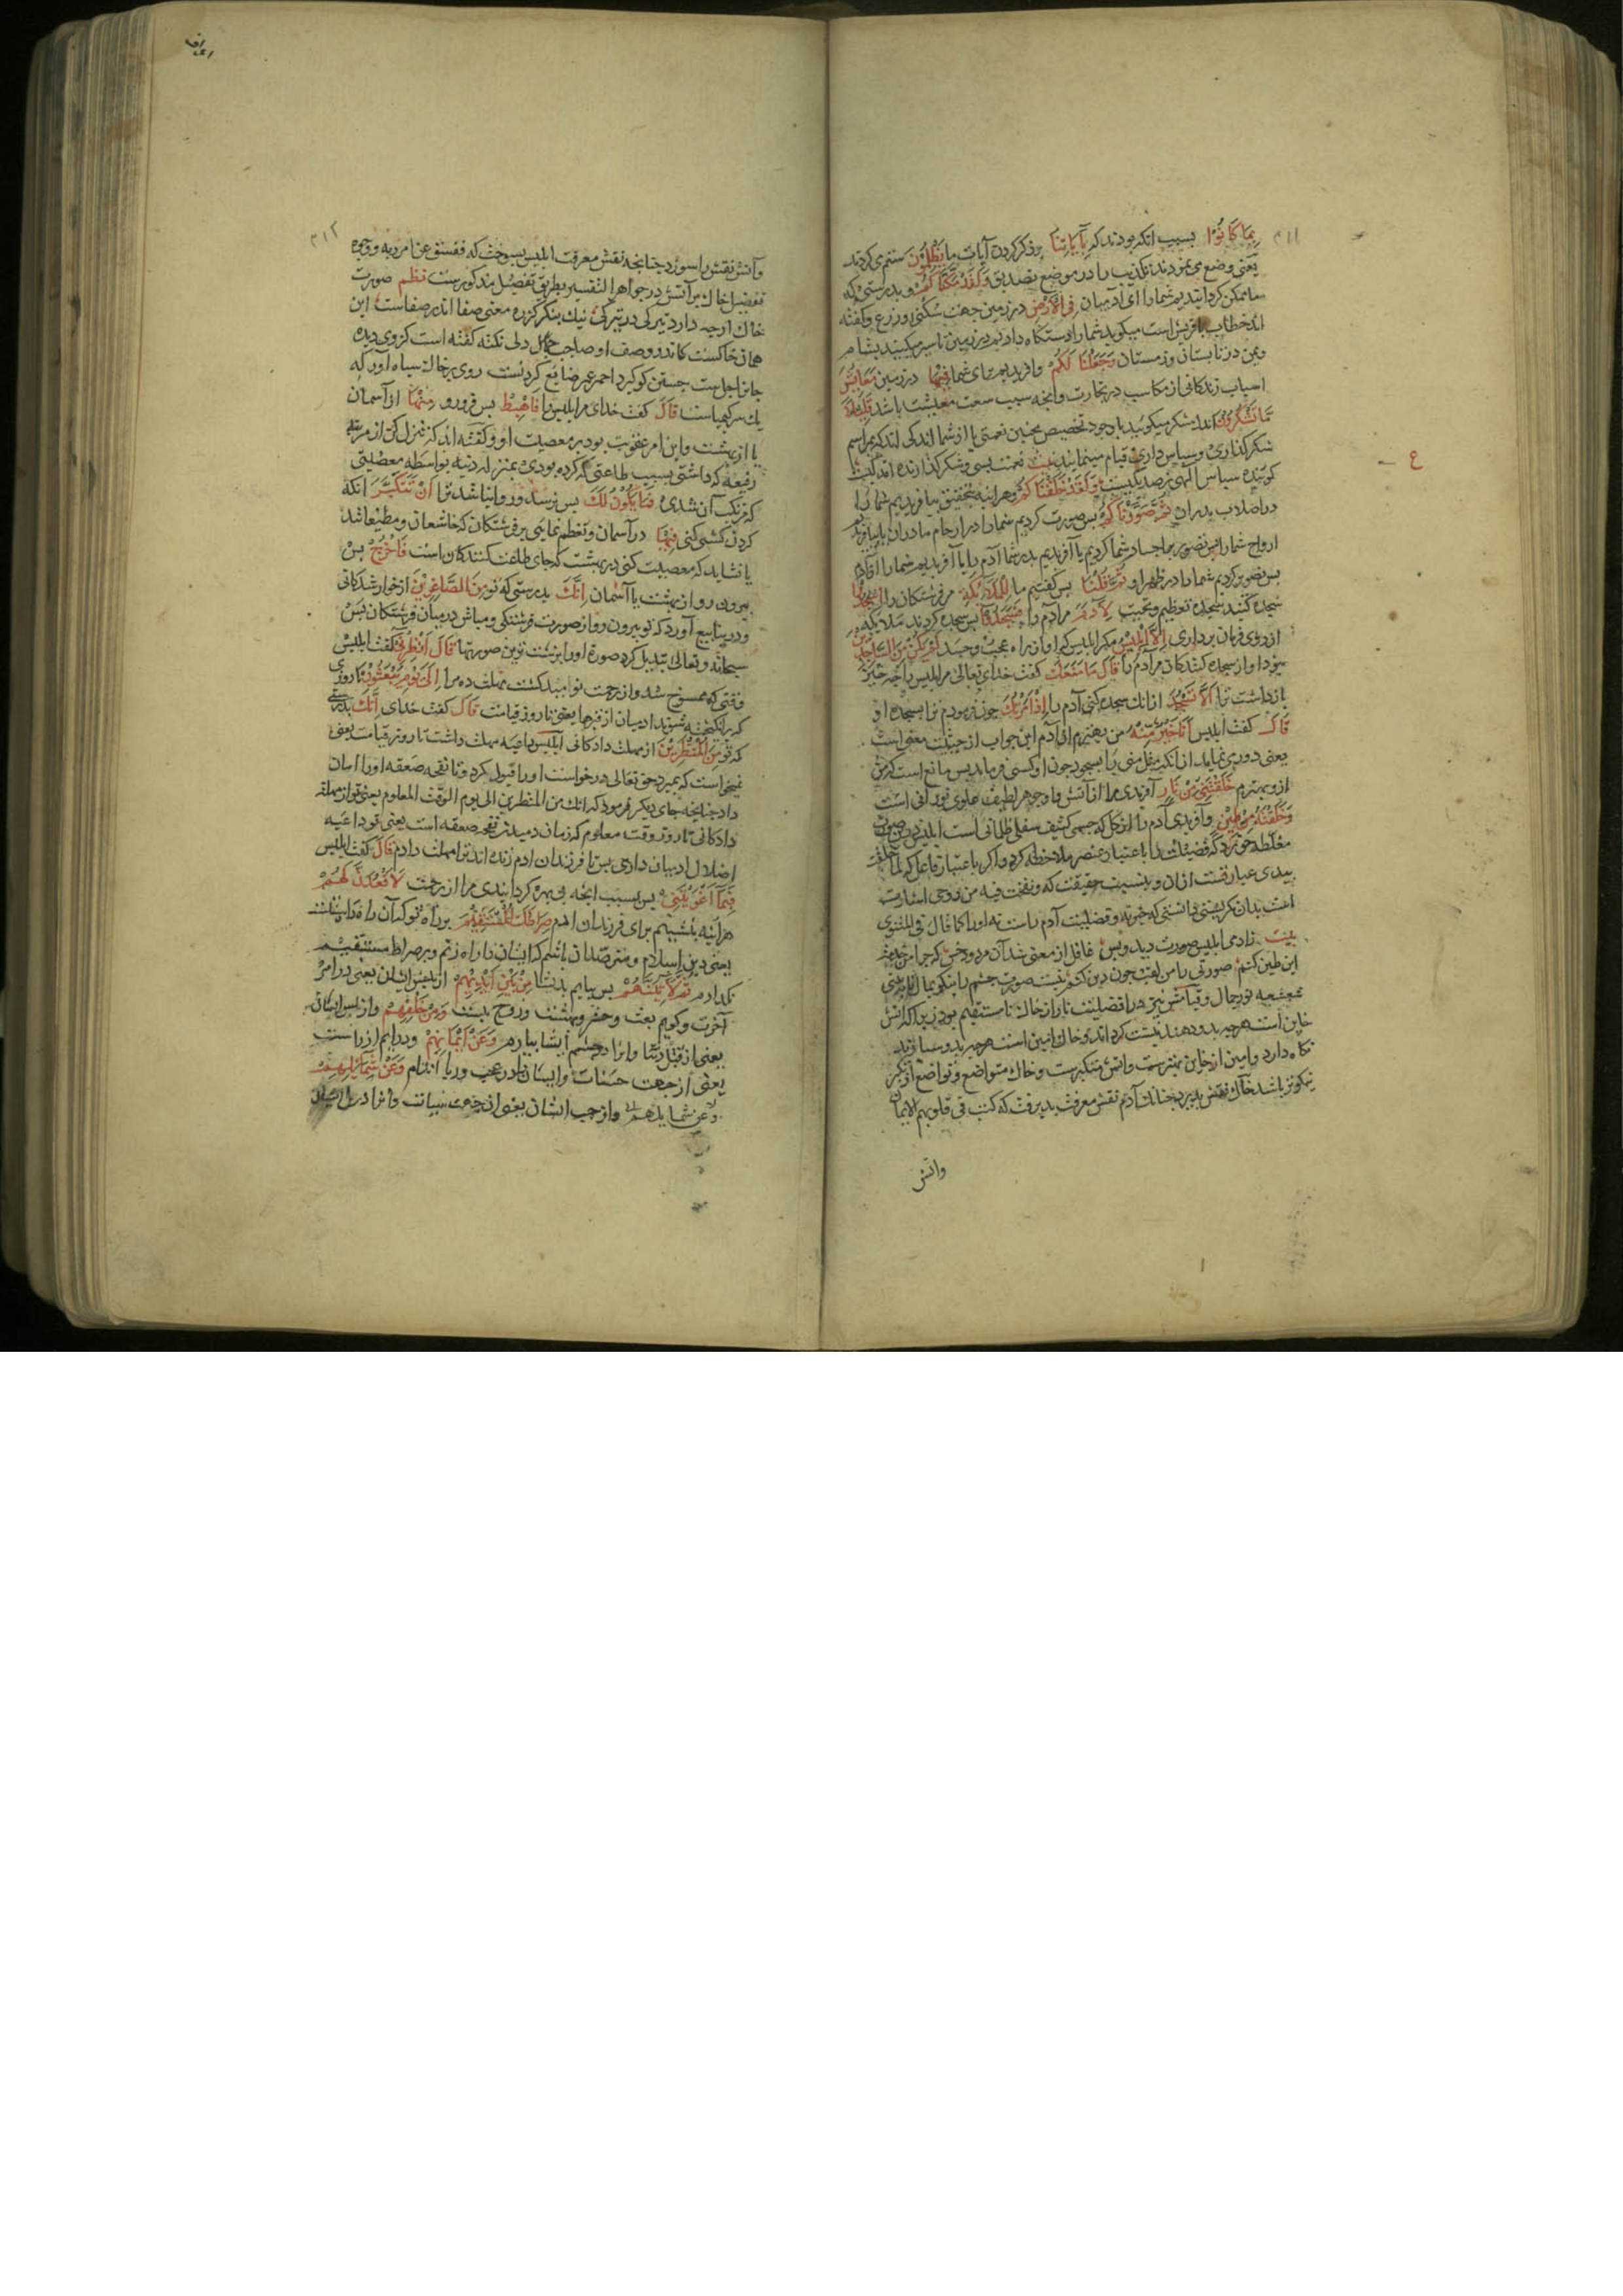 بِمَا كَانُوْا بسبب انكه بودند كه بِآيَاتِنَا بر ذكر كردن آيات ما يَظْلِمُوْنَ ستم مى كردند
يعنى وضع مى نمودند تكذيب را در موضع تصديق وَلَقَدْ مَكَّنَّاكُمْ و بدرستى كه
ما ممكن كردانيديم شما را اى آدميان فِى الْاَرْضِ در زمين جهت سكنى و زرع و كفته
اند خطاب با قريش است ميكويد شما را دستكاه داديم در زمين تا سير ميكنيد بشام
و يمن در تابستان و زمستان وَجَعَلْنَا لَكُمْ و آفريديم براى شما فِيْهَا در زمين مَعَايِشَ
اسباب زندكانى از مكاسب در تجارت و انچه سبب سعت معيشت باشد قَلِيْلًا
مَا تَشْكُرُوْنَ اندك شكر ميكوئيد با وجود تخصيص بچنين نعمتى يا از شما اندكى اند كه بمراسم
شكر كذارى و سپاس دارى قيام مينمايند بيت نعمت بسى و شكر كذارنده اندكيست
كوينده سپاس الهى ز صد يكيست وَلَقَدْ خَلَقْنَاكُمْ و هر اينه بتحقيق بيافريديم شما را
در اصلاب پدران ثُمَّ صَوَّرْنَاكُمْ پس صورت كرديم شما را در ارحام مادران يا بيافريديم
ارواح شما را پس تصوير اجساد شما كرديم يا آفريديم پدر شما آدم را يا آفريديم شما را
پس تصوير كرديم شما را در ظهر او ثُمَّ قُلْنَا پس كفتيم ما لِلْمَلَائِكَةِ مر فرشتكان را اسْجُدُوْا
سجده كنيد سجده تعظيم و تحيت لِاٰدَمَ مر آدم را فَسَجَدُوْا پس سجده كردند ملائكه
از روى فرمان بردارى اِلَّا اِبْلِيْسَ مكر ابليس كه او از راه عجب و حسد لَمْ يَكُنْ مِنَ السَّاجِدِيْنَ
نبود او از سجده كنندكان مر آدم را قَالَ مَا مَنَعَكَ كفت خداى تعالى مر ابليس را چه چيز
باز داشت ترا اَلَّا تَسْجُدَ از انك سجده كنى آدم را اِذْ اَمَرْتُكَ چون فرمودم ترا بسجده او
قَالَ كفت ابليس اَنَا خَيْرٌ مِنْهُ من بهترم از آدم اين جواب از حيثيت معنى است
يعنى دورى نمايد از انكه مثل منى را بسجود چون او كسى فرمايد پس مانع است كه من
ازو بهترم خَلَقْتَنِيْ مِنْ نَارٍ آفريدى مرا از آتش و او جوهر لطيف علوى نورانى است
وَخَلَقْتَهُ مِنْ طِيْنٍ و آفريدى آدم را از كل كه جسمى كثيف سفلى ظلمانى است ابليس درين صورت
مغلطه خورد كه فضيلت را باعتبار عنصر ملاحظه كرد و اكر باعتبار فاعل كه لما خلقت
بيدى عبارتست ازان و بنسبت حقيقت كه و نفخت فيه من روحى اشارتست
بدان نكريستى دانستى كه خيريه و فضيلت آدم راست نه او را كما قال فى المثنوى
بيت زادمى ابليس صورت ديد و بس غافل از معنى شد آن مردود خس
نور جال و قيامش نيز در افضليت نار از خاك نا مستقيم بود زيرا كه آتش
خاين است هرچه بدو دهند نيست كرداند و خاك امين است هرچه بدو سپارند
نكاه دارد و امين از خاين بهتر است و آتش متكبرست و خاك متواضع و تواضع از تكبر
نيكوتر باشد خاك نقش پذيرد چنانك آدم نقش معرفت پذيرفت كه كتب فى قلوبهم الايمان
وآتش
و آتش نقش را سوزد چنانچه نقش معرفت ابليس بسوخت كه ففسق عن امر ربه و وجوه
تفضيل خاك بر آتش در جواهر التفسير بطريق تفصيل مذكورست نظم صورت
خاك ارچه دارد تيركى در تيركى نيك بنكر كز ره معنى صفا اندر صفاست اين
همان خاكست كاندر وصف او صاحب دلى نكته كفته است كز وى ديده
جانرا جلاست جستن كوكرد احمر عمر ضايع كردنست روى بر خاك سياه آور كه
يك سر كيمياست قَالَ كفت خداى مر ابليس را فَاهْبِطْ پس فرو رو مِنْهَا از آسمان
يا از بهشت و اين امر عقوبت بود بر معصيت او و كفته اند كه تنزل كن از مرتبه
رفيعه كه داشتى بسبب طاعتى كه كرده بودى بمنزله دنيه بواسطه معصيتى
كه مرتكب آن شدى فَمَا يَكُوْنُ لَكَ پس نرسد و روا نباشد ترا اَنْ تَتَكَبَّرَ انكه
كردن كشى كنى فِيْهَا در آسمان و تعظم نمايى بر فرشتكان كه خاشعان و مطيعانند
يا نشايد كه معصيت كنى در بهشت كه جاى طاعت كنندكان است فَاخْرُجْ پس
بيرون رو از بهشت يا آسمان اِنَّكَ بدرستى كه تو مِنَ الصَّاغِرِيْنَ از خوار شدكانى
و در ينابيع آورد كه تو بيرون رو از صورت فرشتكى و مباش در ميان فرشتكان پس
سبحانه و تعالى تبديل كرد صورة او را بزشت ترين صورتها قَالَ اَنْظِرْنِيْ كفت ابليس
وقتى كه ممسوخ شد و از رحمت نوميد كشت مهلت ده مرا اِلَى يَوْمِ يُبْعَثُوْنَ تا روزى
كه برانكيخته شوند ادميان از قبرها يعنى تا روز قيامت قَالَ كفت خداى اِنَّكَ بدرستى
كه تو مِنَ الْمُنْظَرِيْنَ از مهلت دادكانى ابليس داعيه مهلت داشت تا روز قيامت يعنى
نميخواست كه بميرد حق تعالى درخواست او را قبول كرد و تا نفخه صعقه او را امان
داد چنانچه جاى ديكر فرمود كه انك من المنظرين الى يوم الوقت المعلوم يعنى تو از مهلت
دادكانى تا روز وقت معلوم كه زمان دميدن نفخه صعقه است يعنى تو داعيه
اضلال ادميان دارى پس تا فرزندان ادم زنده اند ترا مهلت دادم قَالَ كفت ابليس
فَبِمَا اَغْوَيْتَنِيْ پس بسبب انچه بى بهره كردانيدى مرا از رحمت لَاَقْعُدَنَّ لَهُمْ
هر اينه بنشينم براى فرزندان ادم صِرَاطَكَ الْمُسْتَقِيْمَ بر راه تو كه آن راه راستست
يعنى دين اسلام و مترصد آن باشم كه ايشان را راه زنم و بر صراط مستقيم
نكذارم ثُمَّ لَاٰتِيَنَّهُمْ پس بيايم بديشان مِنْ بَيْنِ اَيْدِيْهِمْ از پيش ايشان يعنى در امر
آخرت و كويم بعث و حشر و بهشت و دوزخ نيست وَمِنْ خَلْفِهِمْ و از پس ايشان
يعنى از قبل دنيا و انرا در چشم ايشان بيارايم وَعَنْ اَيْمَانِهِمْ و در ايم از راست
يعنى از جهت حسنات و ايشان را در عجب و ريا اندازم وَعَنْ شَمَائِلِهِمْ
و عن شمايلهم و از چپ ايشان يعنى از جهت سيات و انرا در دل ايشان